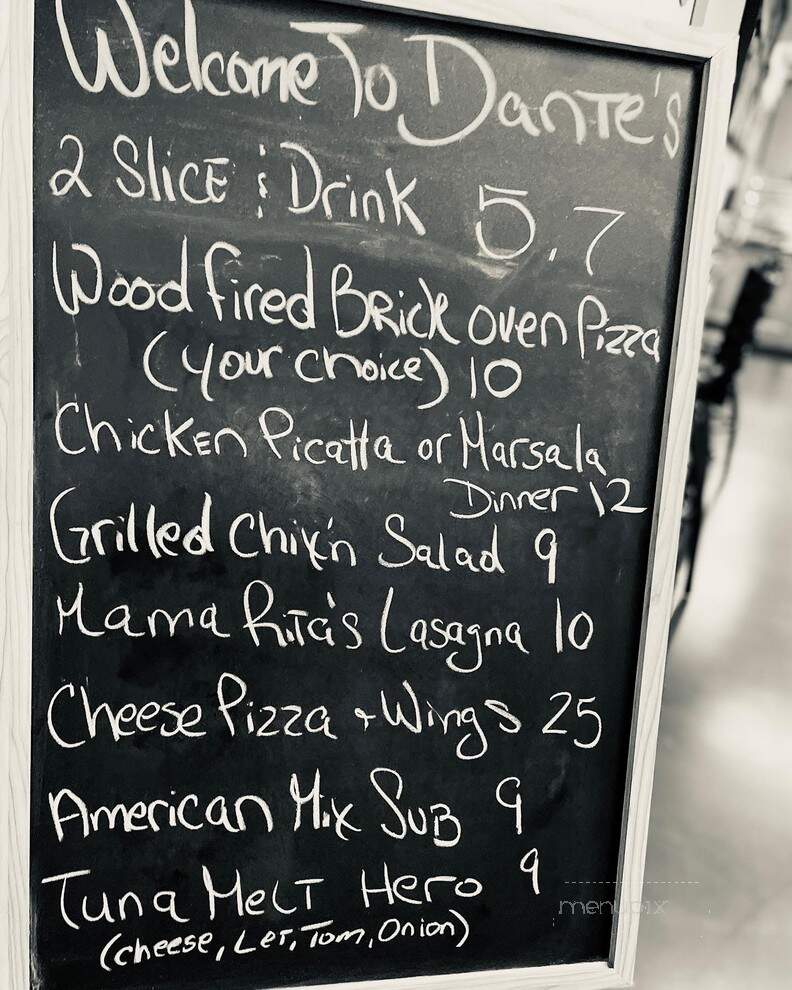 Welcome To Dante's
2 Slice & Drink 5.7
Wood fired Brick oven Pizza
(your choice) 10
Chicken Picatta or Marsala
Dinner 12
Grilled Chik'n Salad 9
Mama Rita's Lasagna 10
Cheese Pizza + Wings 25
American Mix Sub 9
Tuna Melt Hero 9
(cheese, Let, Tom, Onion)
menupix